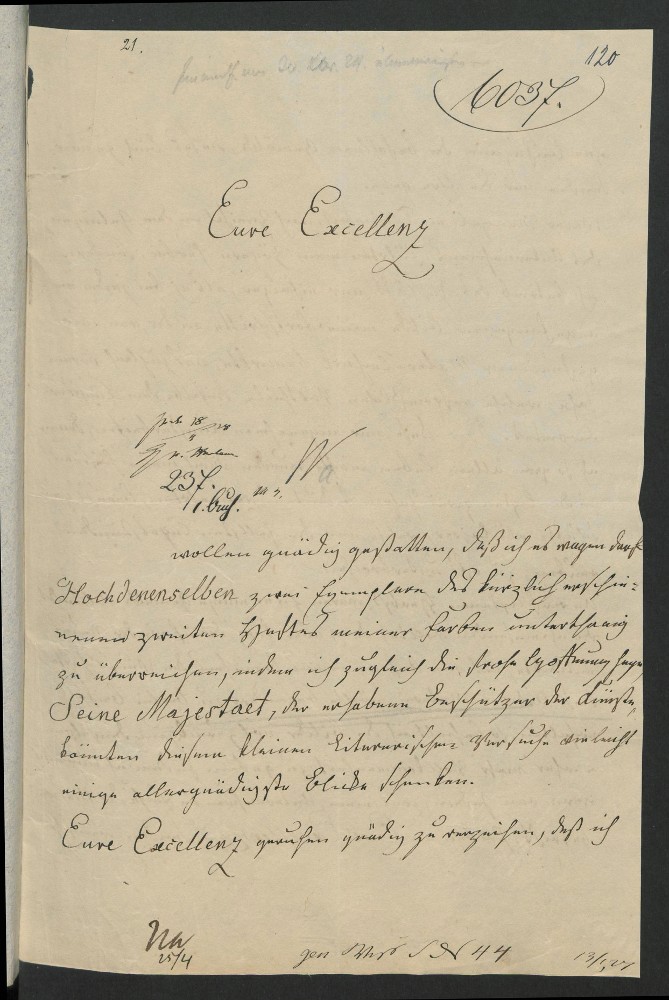 21.
120
6037.
Eure Excellenz
237.
wollen gnädig gestatten, daß ich es wagen darf
Hochdenenselben zwei Exemplare des kürzlich erschie-
nenen zweiten Heftes meiner Farben unterthänig
zu überreichen, indem ich zugleich die frohe Hoffnung hege,
Seine Majestaet, der erhabene Beschützer der Künste,
könnten diesem kleinen Literarischen Versuche vielleicht
einige allergnädigste Blicke schenken.
Eure Excellenz geruhen gnädig zu verzeihen, daß ich
25/4
44